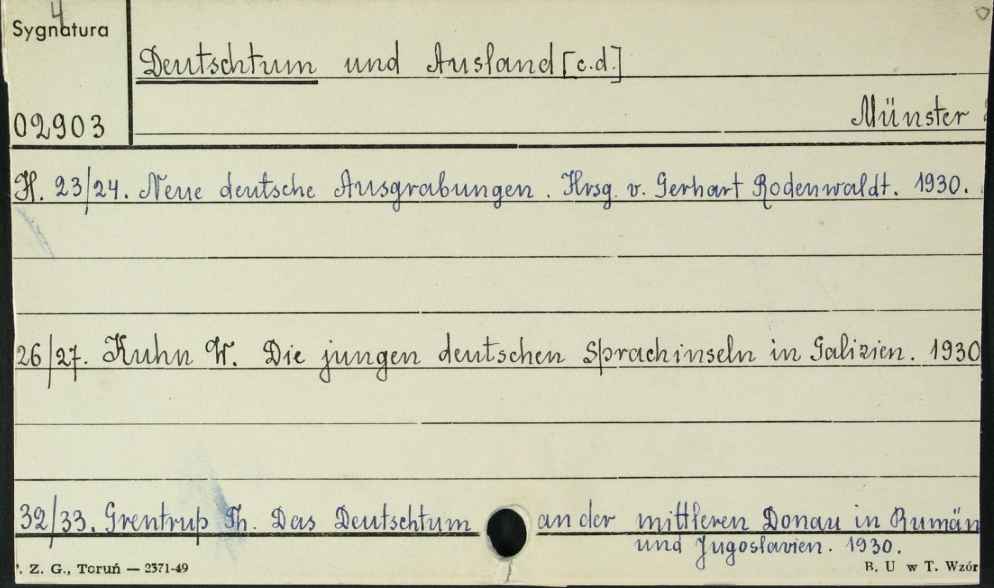 4
Sygnatura
Deutschtum und Ausland [c.d.]
02903
Münster
H. 23/24. Neue deutsche Ausgrabungen. Hrsg. v. Gerhart Rodenwaldt. 1930.
26/27. Kuhn W. Die jungen deutschen Sprachinseln in Galizien. 1930
32/33. Grentrup Th. Das Deutschtum an der mittleren Donau in Rumän
und Jugoslavien. 1930.
. Z. G., Toruń — 2571-49
B. U w T. Wzór